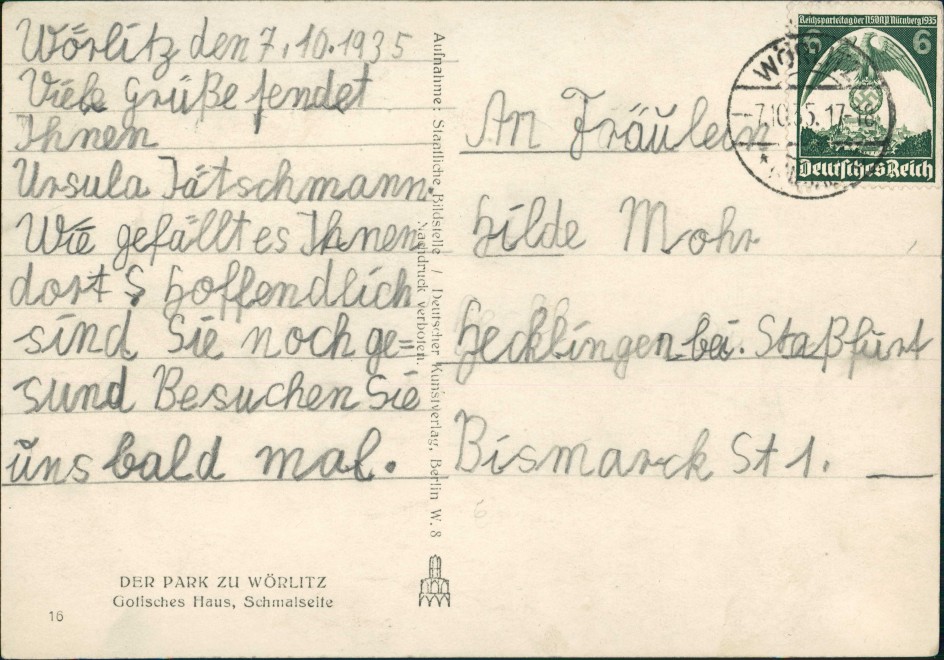 Wörlitz den 7.10.1935
Viele Grüße sendet
Ihnen
Ursula Tätschmann.
Wie gefällt es Ihnen
dort? hoffendlich
sind Sie noch ge=
sund Besuchen Sie
uns bald mal.
DER PARK ZU WÖRLITZ
Gotisches Haus, Schmalseite
16
Aufnahme: Staatliche Bildstelle / Deutscher Kunstverlag, Berlin W. 8
Nachdruck verboten.
Reichsparteitag der NSDAP Nürnberg 1935
6 6
Deutsches Reich
7.10.35.17-18
An Fräulein
Hilde Mohr
Hecklingen bei. Staßfurt
Bismarck St 1.